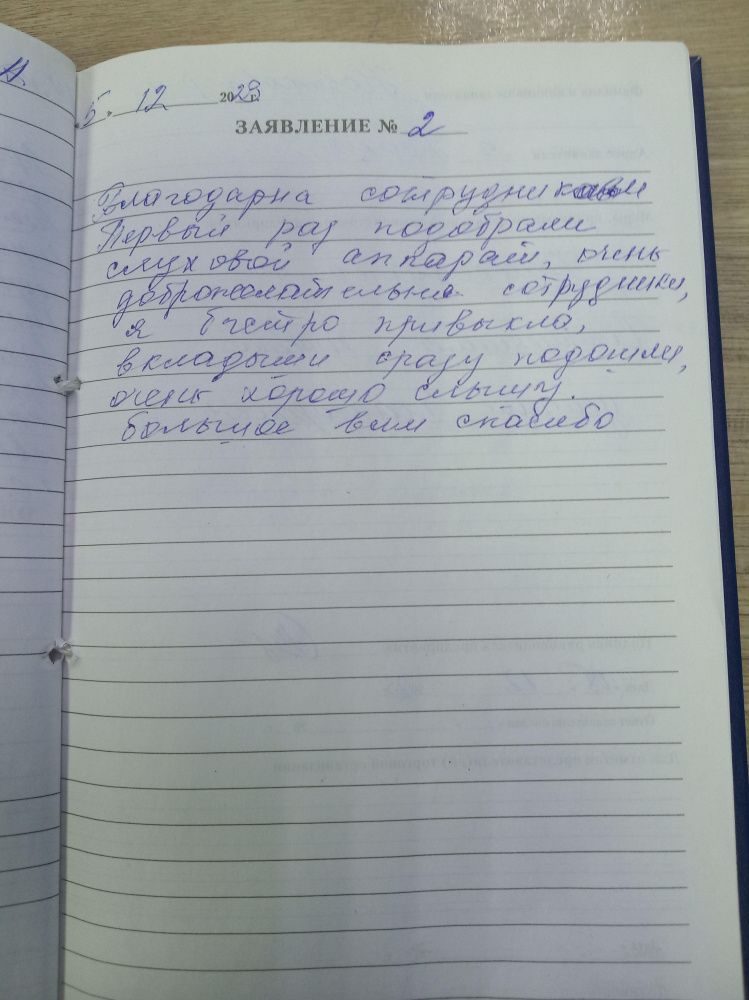 5. 12 2023 г.
ЗАЯВЛЕНИЕ № 2
Благодарна сотрудникам
Первый раз подобрали
слуховой аппарат, очень
доброжелательные сотрудники,
я быстро привыкла,
вкладыши сразу подошли,
очень хорошо слышу.
большое всем спасибо